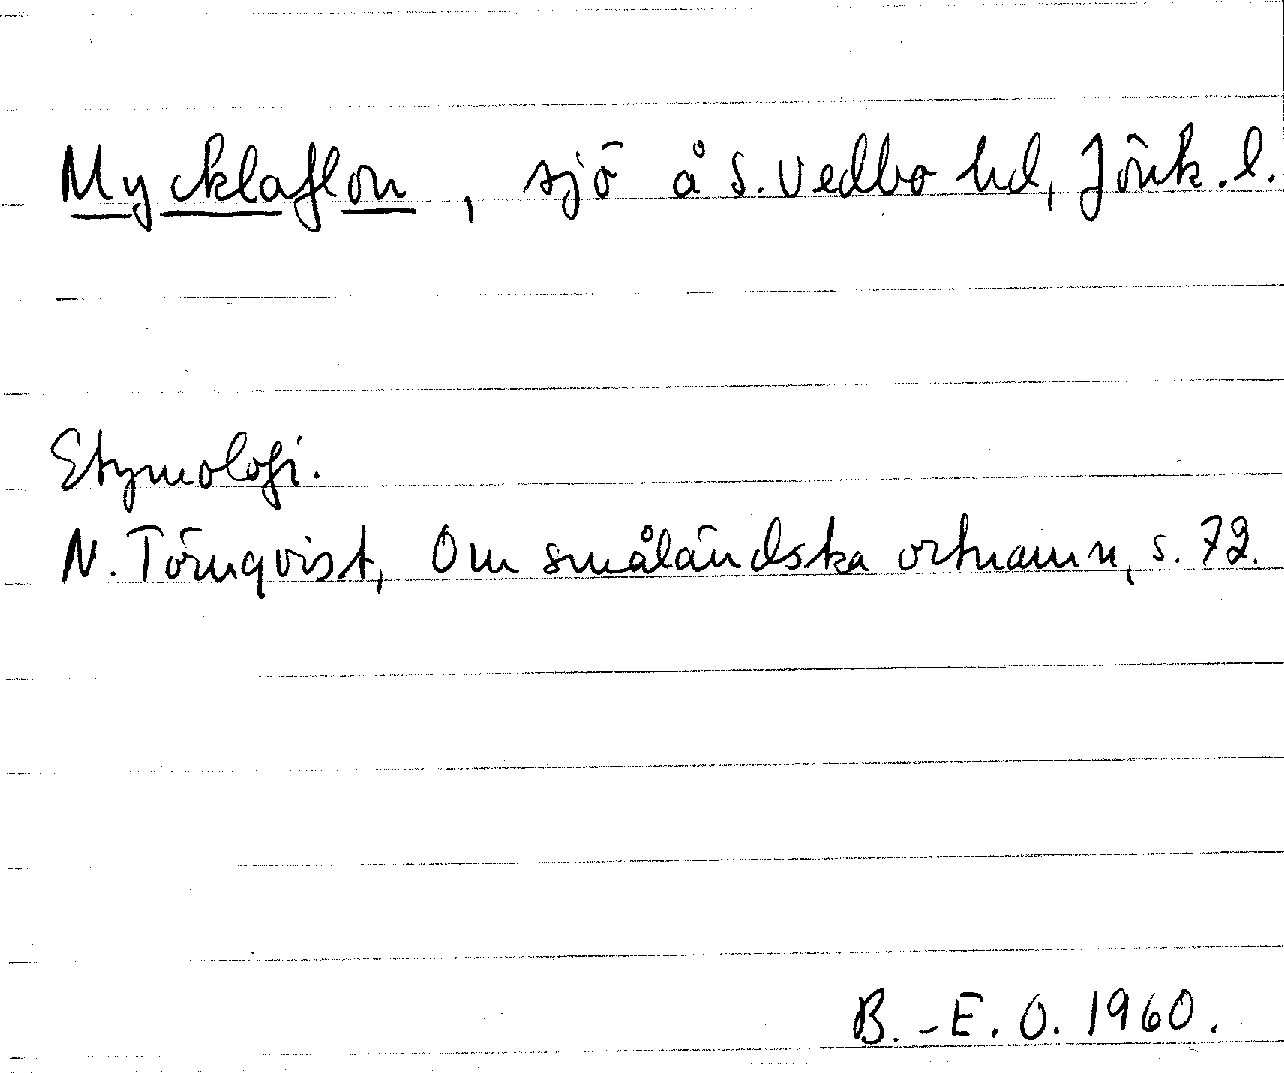 Mycklaflon, sjö å S. Vedbo hd, Jönk. l.
Etymologi.
N. Törnqvist, Om småländska ortnamn, s. 72.
B.-E. O. 1960.